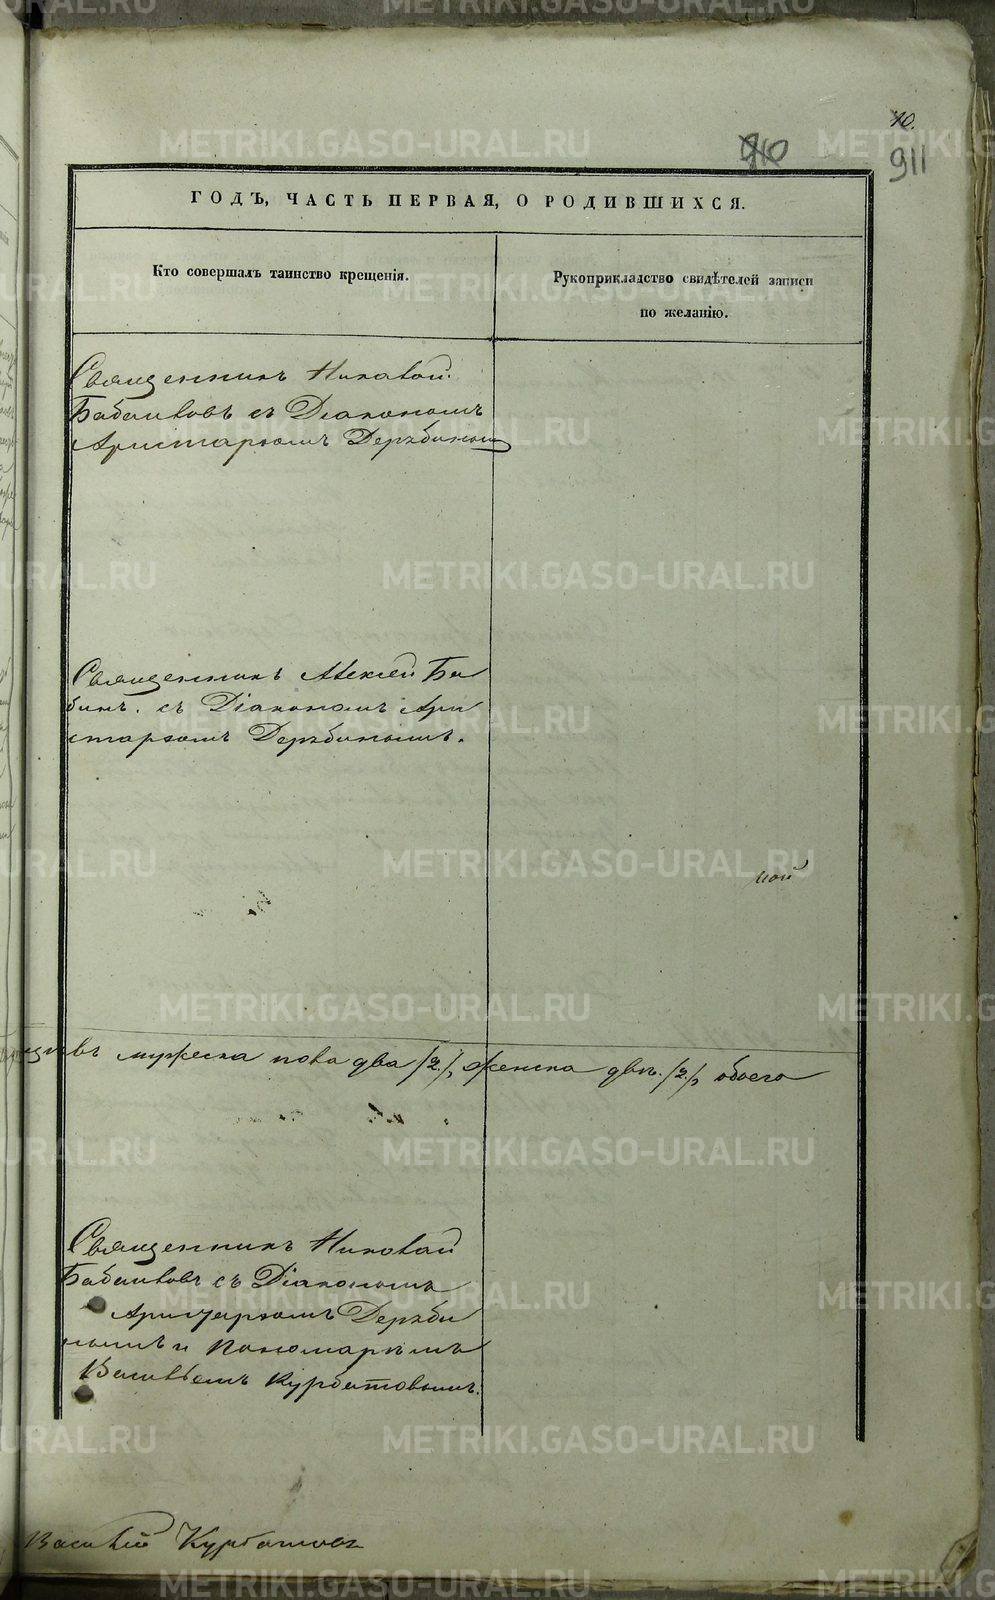 METRIKI.GASO-URAL.RU
10.
910
911
ГОДЪ, ЧАСТЬ ПЕРВАЯ, О РОДИВШИХСЯ.
Кто совершалъ таинство крещенія.
Рукоприкладство свидѣтелей записи
по желанію.
Священникъ Николай
Бабаиловъ съ Діакономъ
Аристархомъ Держбиным
Священникъ Алексѣй Ба
бинъ. съ Діакономъ Ари
стархомъ Держбинымъ.
мой
мужеска пола два /2./, женска двѣ. /2./, обоего
Священникъ Николай
Бабаиловъ съ Діакономъ
Аристархомъ Держби
нымъ и Пономаремъ
Васильемъ Курбатовымъ.
Василій Курбатовъ